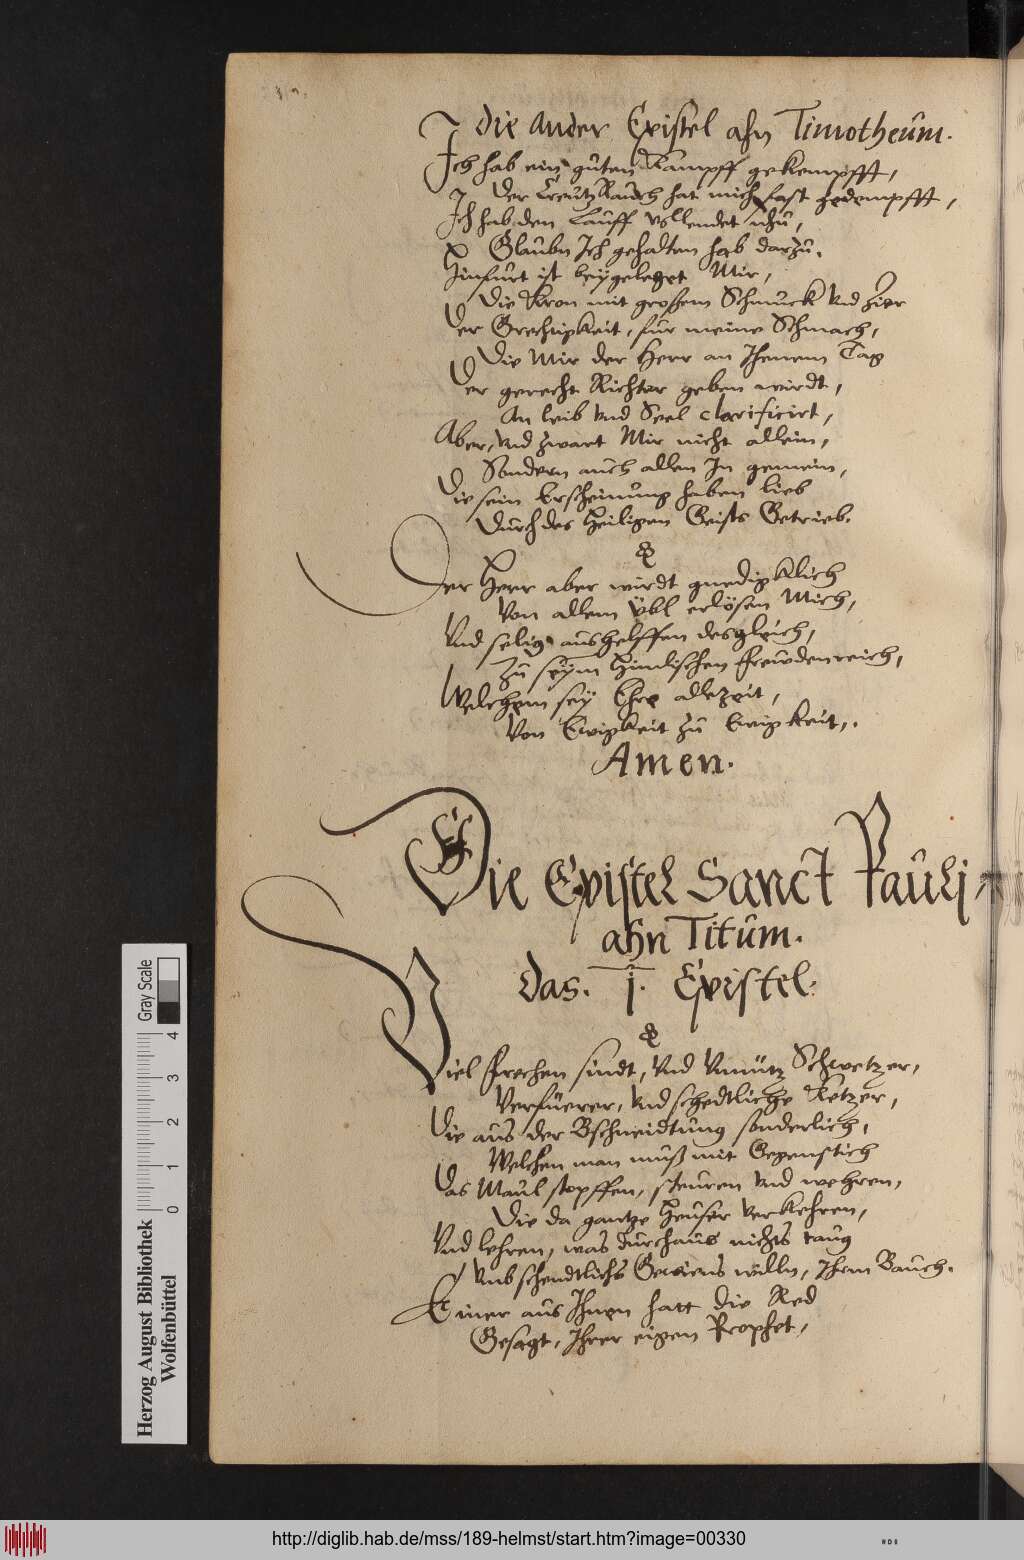 die Ander Epistel ahn Timotheum.
Ich hab ein guten Kampff gekempfft,
Der Creutz Rauch hat mich fast gedempfft,
Ich hab den Lauff vollendet nhu,
Glaubn Ich gehalten hab darzu.
Hinfurt ist beygeleget Mir,
Die Kron mit grossem Schmuck vnd Zier
Der Grechtigkeit, für meine Schmach,
Die Mir der Herr an Jhenem Tag
Der gerecht Richter geben wirdt,
An leib vnd Seel clarificirt,
Aber, vnd zwart Mir nicht allein,
Sondern auch allen In gemein,
Die sein Erscheinung haben lieb
Durch des Heiligen Geists Getrieb.
Der Herr aber wirdt gnedigklich
Von allem übl erlösen Mich,
Vnd selig aushelffen desgleich,
Zu seÿm Himlischen freudenreich,
Welchem seÿ Ehre allezeit,
Von Ewigkeit zu Ewigkeit,.
Amen.
Die Epistel Sanct Pauli
ahn Titum.
das. 1. Epistel.
Viel frechen sindt, vnd vnnütz Schwetzer,
Verfüerer, vnd schedtliche Ketzer,
Die aus der Bschneidtung sonderlich,
Welchen man muß mit Gegenstich
Das Maul stopffen, steuren vnd wehren,
Die da gantze Heuser verkehren,
Vnd lehren, was durchaus nichts taug
Vmb schendtlichs Gewiens willn, Ihrem Bauch.
Einer aus Ihnen hatt die Red
Gesagt, Ihrer eigen Prophet,
Herzog August Bibliothek
Wolfenbüttel
0 1 2 3 4
Gray Scale
http://diglib.hab.de/mss/189-helmst/start.htm?image=00330